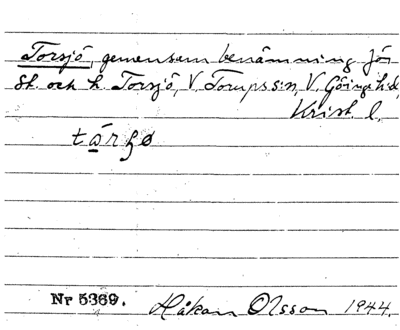 Torsjö, gemensam benämning för
St. och L. Torsjö, V. Torups sn, V. Göinge hd,
Krist. l.
Nr 5369. Håkan Olsson 1944.